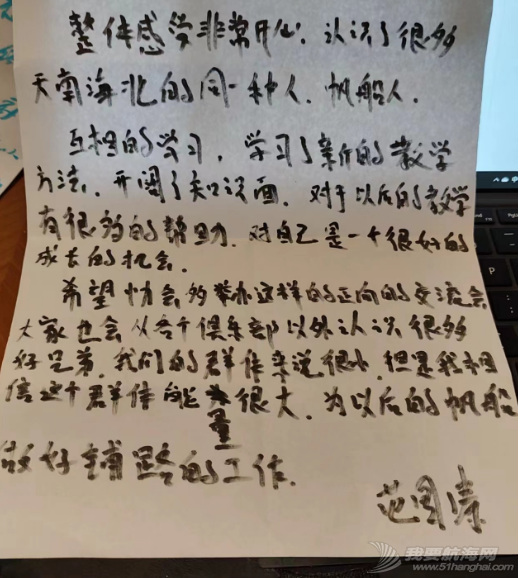 整体感受非常开心. 认识了很多
天南海北的同一种人. 帆船人.
互相的学习, 学习了新的教学
方法, 开阔了知识面. 对于以后的教学
有很多的帮助. 对自己是一个很好的
成长的机会.
希望协会多举办这样的正向的交流会
大家也会从各个俱乐部以外认识很多
好兄弟. 我们的群体来说很小 但是我相
信这个群体能量很大. 为以后的帆船
做好铺路的工作.
我要航海网
www.51hanghai.com